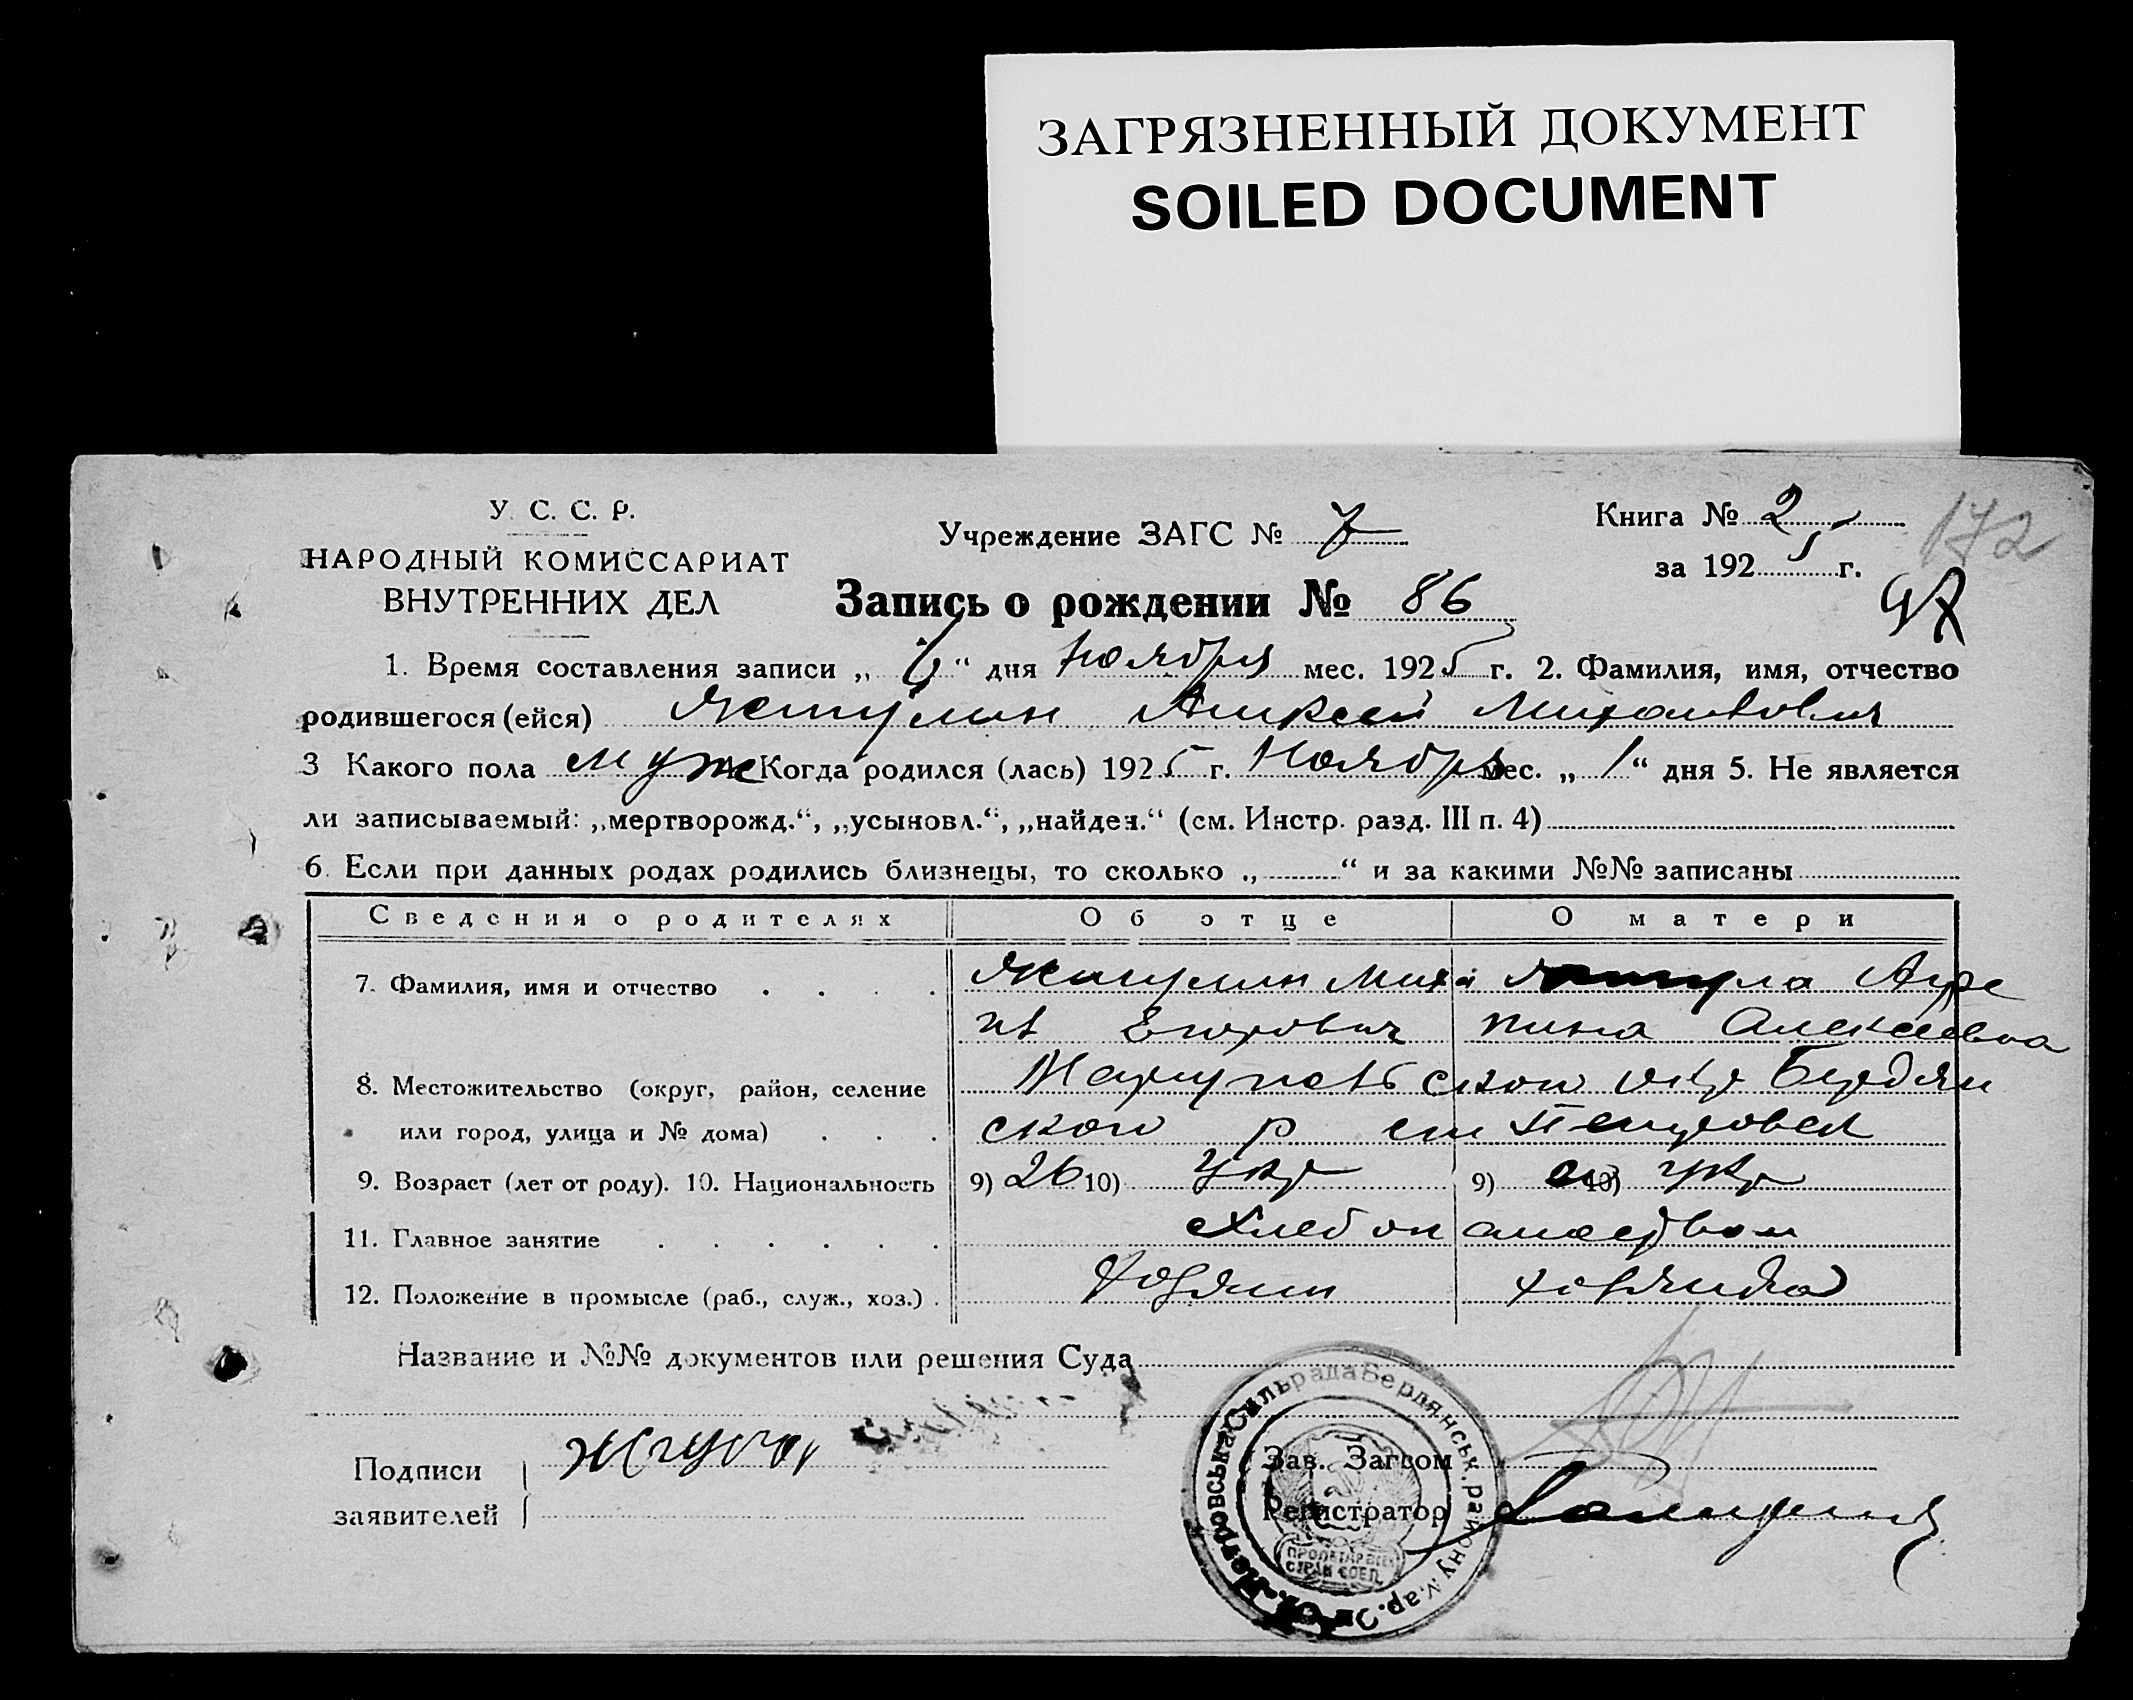 ЗАГРЯЗНЕННЫЙ ДОКУМЕНТ
SOILED DOCUMENT
У. С. С. Р.
НАРОДНЫЙ КОМИССАРИАТ
ВНУТРЕННИХ ДЕЛ
Учреждение ЗАГС № 7
Книга № 2
за 1925 г.
172
97
Запись о рождении № 86
1. Время составления записи „ 6 “ дня Ноября мес. 1925 г. 2. Фамилия, имя, отчество
родившегося (ейся) Алксей Михайлович
3 Какого пола муж 4. Когда родился (лась) 1925 г. Ноября мес. „ 1 “ дня 5. Не является
ли записываемый: „мертворожд.“, „усыновл.“, „найден.“ (см. Инстр. разд. III п. 4)
6. Если при данных родах родились близнецы, то сколько „ “ и за какими №№ записаны
Сведения о родителях Об отце О матери
7. Фамилия, имя и отчество Миха Агре
ил Егорович пина Алексеевна
8. Местожительство (округ, район, селение Мариупольской окр Бердян
или город, улица и № дома) ской р Петровск
9. Возраст (лет от роду). 10. Национальность 9) 26 10) Укр 9) 10) укр
11. Главное занятие Хлебопашеством
12. Положение в промысле (раб., служ., хоз.) Хозяин хозяйка
Название и №№ документов или решения Суда
Подписи
заявителей
Зав. Загсом
Регистратор
Петровська Сильрада Бердянськ. району Мар. Окр.
ПРОЛЕТАРИ ВСЕХ
СТРАН СОЕД.